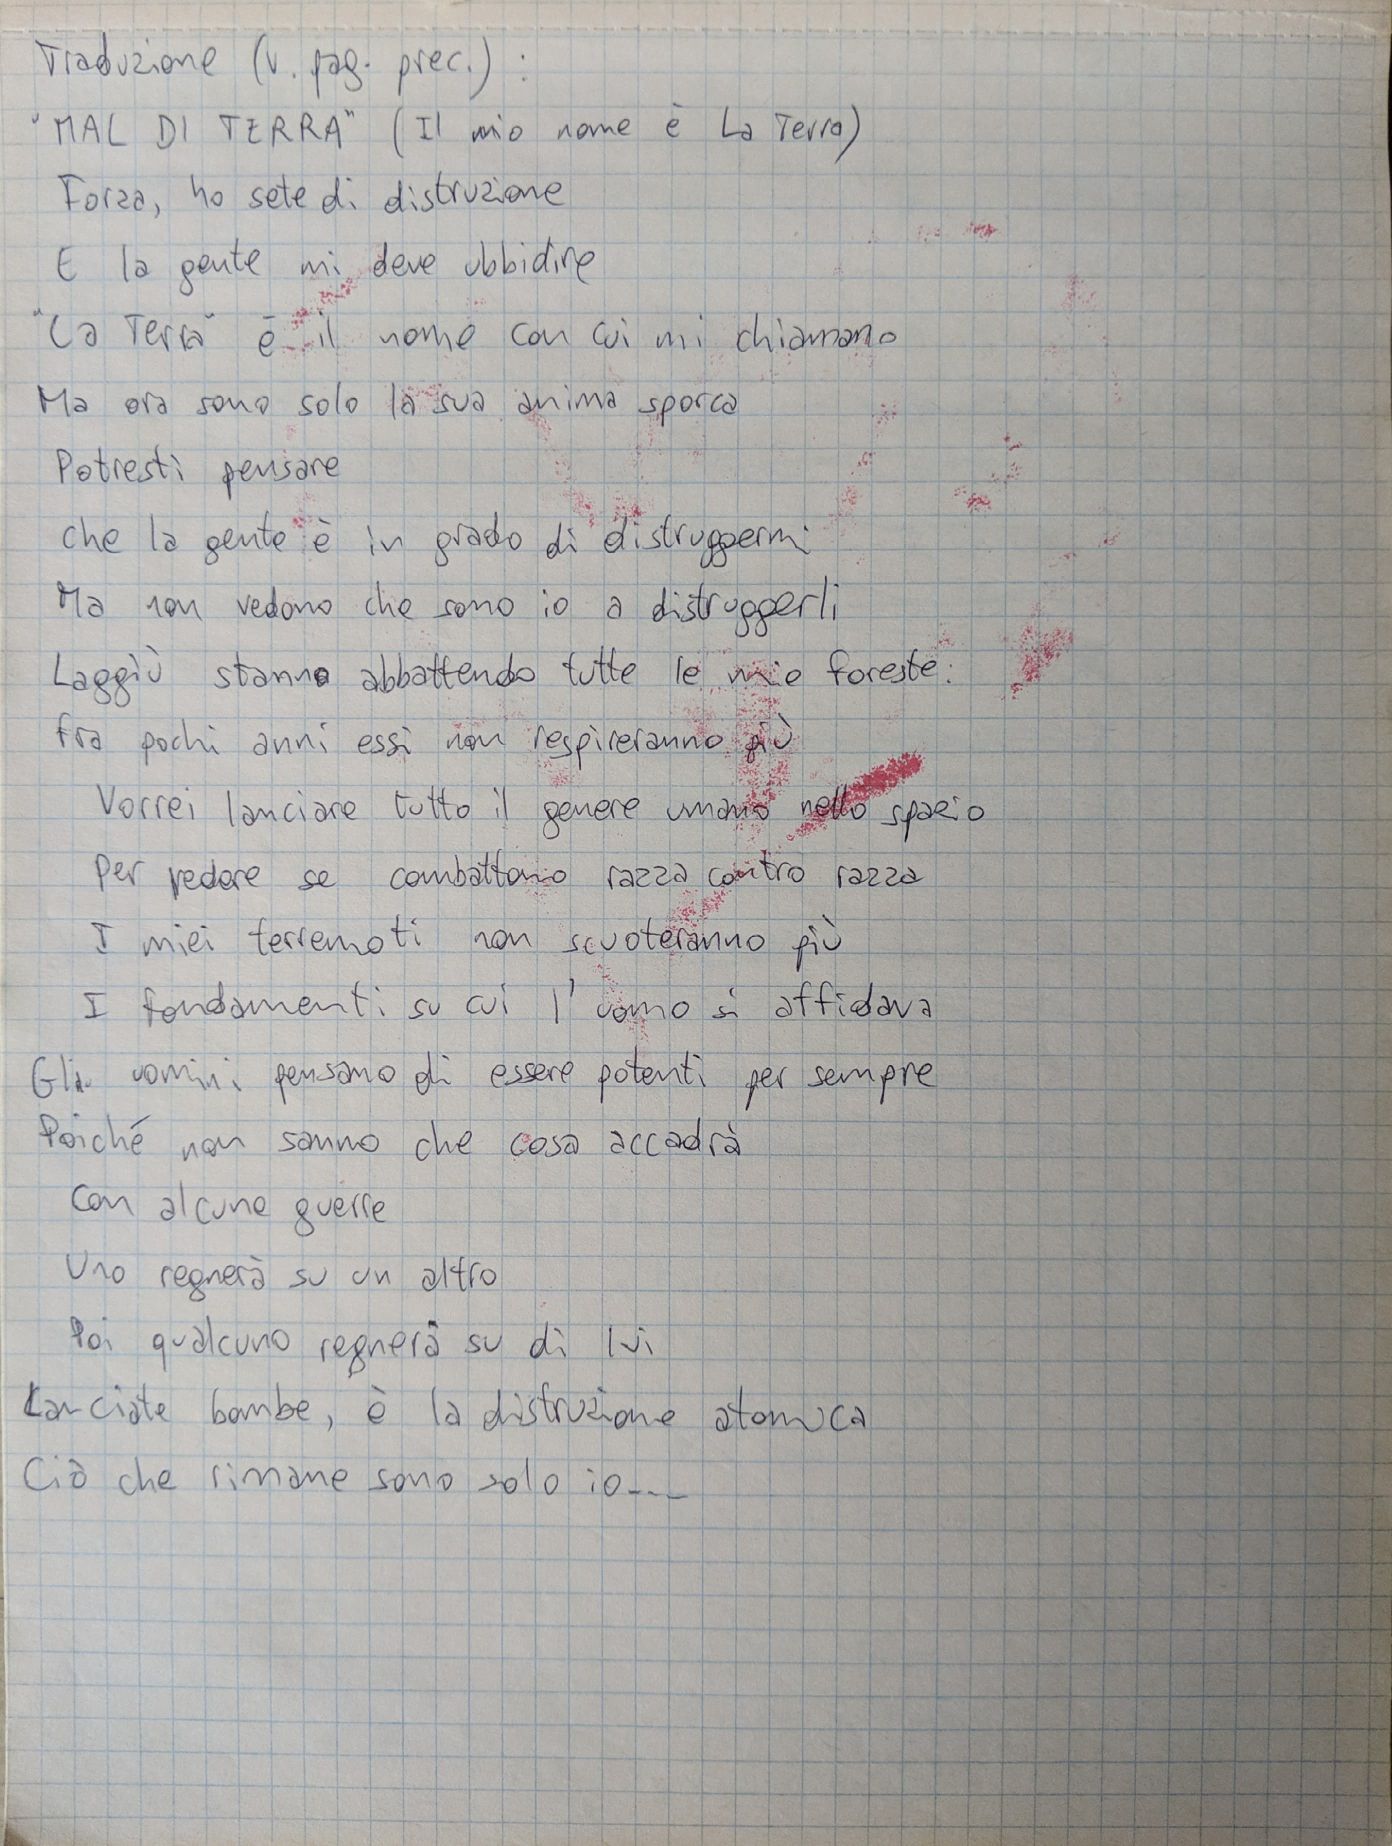 Traduzione (v. pag. prec.) :
"MAL DI TERRA" (Il mio nome è La Terra)
Forza, ho sete di distruzione
E la gente mi deve ubbidire
"La Terra" è il nome con cui mi chiamano
Ma ora sono solo la sua anima sporca
Potresti pensare
che la gente è in grado di distruggermi
Ma non vedono che sono io a distruggerli
Laggiù stanno abbattendo tutte le mie foreste:
fra pochi anni essi non respireranno più
Vorrei lanciare tutto il genere umano nello spazio
Per vedere se combattono razza contro razza
I miei terremoti non scuoteranno più
I fondamenti su cui l'uomo si affidava
Gli uomini pensano di essere potenti per sempre
Poiché non sanno che cosa accadrà
Con alcune guerre
Uno regnerà su un altro
Poi qualcuno regnerà su di lui
Lanciate bombe, è la distruzione atomica
Ciò che rimane sono solo io...